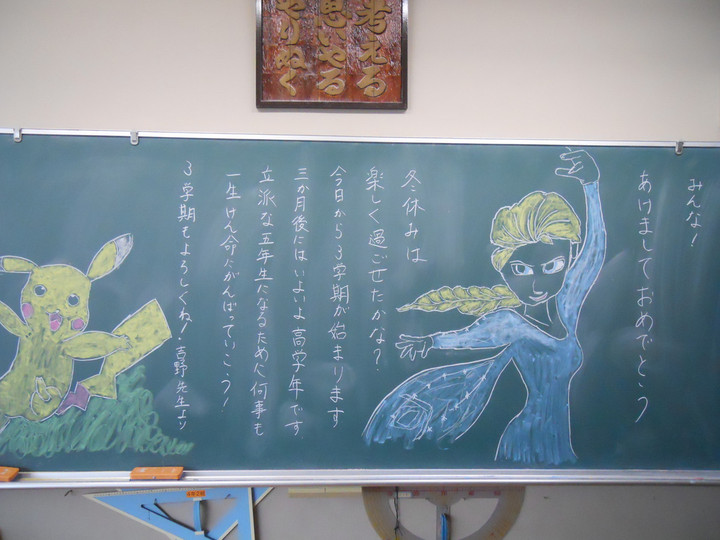 考える
思いやる
やりぬく
みんな！
あけましておめでとう
冬休みは
楽しく過ごせたかな？
今日から３学期が始まります
三か月後にはいよいよ高学年です
立派な五年生になるために何事も
一生けん命がんばっていこう！
３学期もよろしくね！・吉野先生より